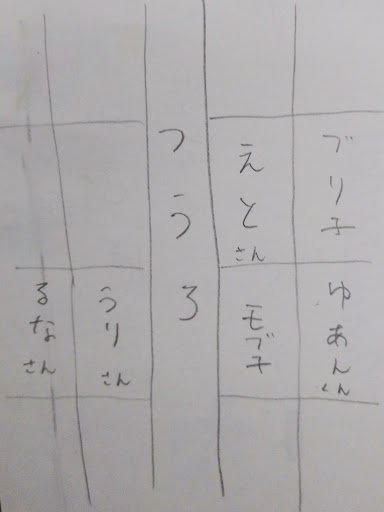 ぶり子
えとさん
つうろ
ゆあんくん
モブ子
うりさん
るなさん